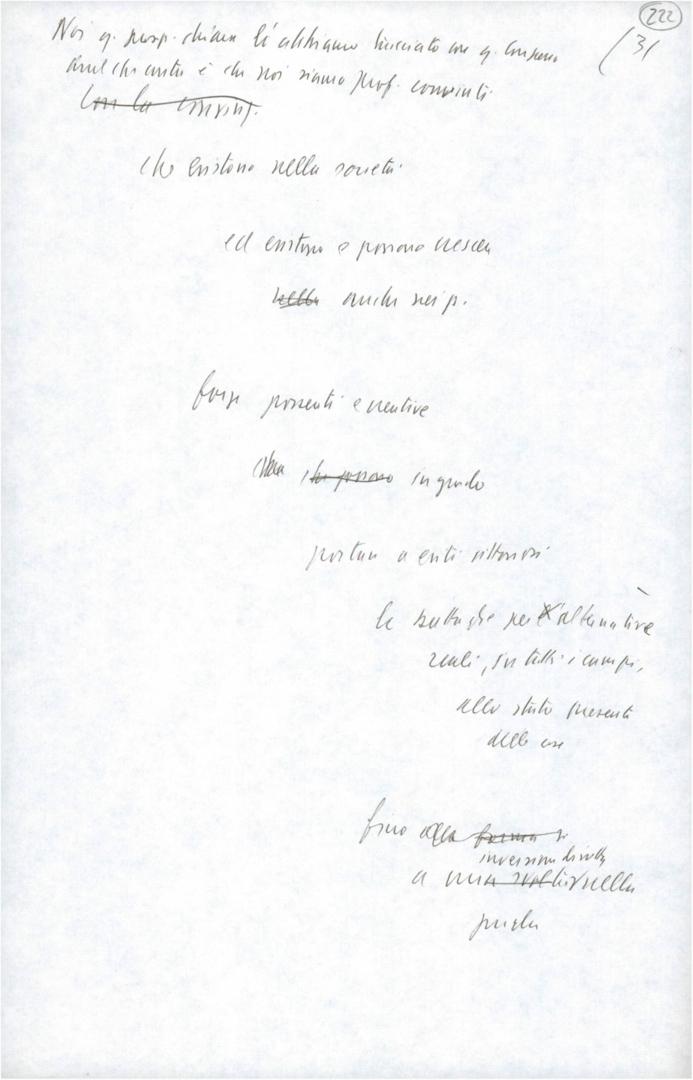 222
31
Noi q. prosp. chiara l'abbiamo tracciata con q. Congresso
anche certo è che noi siamo prof. convinti
Con la convinz.
che esistono nella società
ed esistono e possono crescere
nella anche nei p.
forze possenti e creative
che possono in grado
portare a esiti vittoriosi
le battaglie per l'alternative
reali, in tutti i campi,
allo stato presente
delle cose
fino alla forma di
inversione di rotta
a una svolta nella
guida